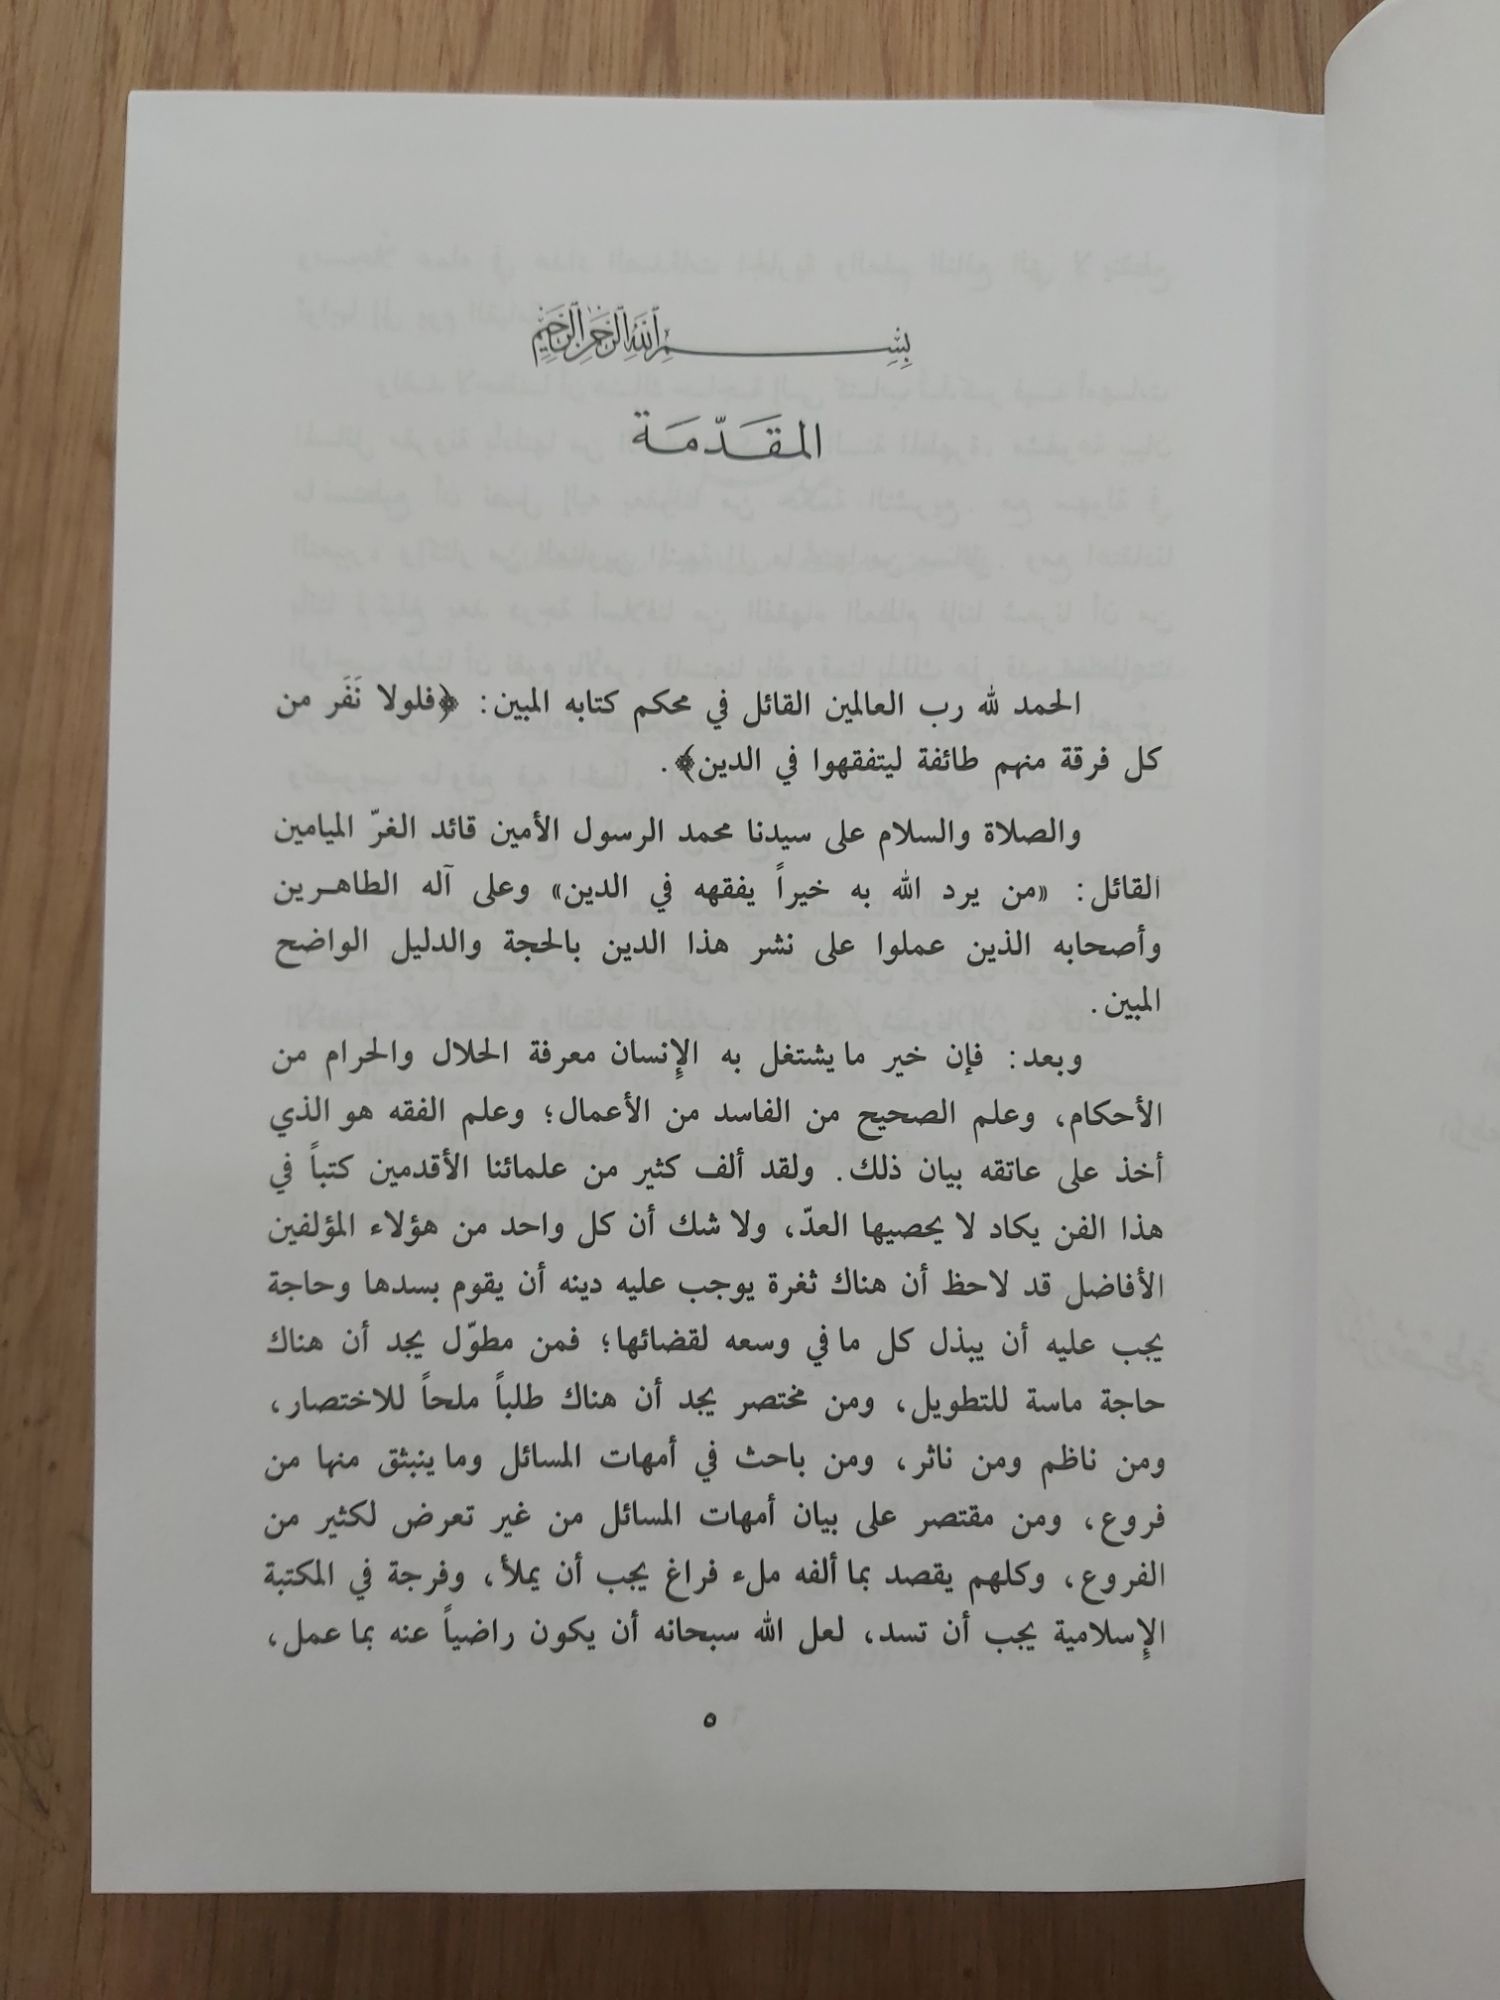 بسم الله الرحمن الرحيم
المقَدّمَة
الحمد لله رب العالمين القائل في محكم كتابه المبين: ﴿فلولا نَفَر من
كل فرقة منهم طائفة ليتفقهوا في الدين﴾.
والصلاة والسلام على سيدنا محمد الرسول الأمين قائد الغرّ الميامين
القائل: «من يرد الله به خيراً يفقهه في الدين» وعلى آله الطاهرين
وأصحابه الذين عملوا على نشر هذا الدين بالحجة والدليل الواضح
المبين.
وبعد: فإن خير ما يشتغل به الإِنسان معرفة الحلال والحرام من
الأحكام، وعلم الصحيح من الفاسد من الأعمال؛ وعلم الفقه هو الذي
أخذ على عاتقه بيان ذلك. ولقد ألف كثير من علمائنا الأقدمين كتباً في
هذا الفن يكاد لا يحصيها العدّ، ولا شك أن كل واحد من هؤلاء المؤلفين
الأفاضل قد لاحظ أن هناك ثغرة يوجب عليه دينه أن يقوم بسدها وحاجة
يجب عليه أن يبذل كل ما في وسعه لقضائها؛ فمن مطوّل يجد أن هناك
حاجة ماسة للتطويل، ومن مختصر يجد أن هناك طلباً ملحاً للاختصار،
ومن ناظم ومن ناثر، ومن باحث في أمهات المسائل وما ينبثق منها من
فروع، ومن مقتصر على بيان أمهات المسائل من غير تعرض لكثير من
الفروع، وكلهم يقصد بما ألفه ملء فراغ يجب أن يملأ، وفرجة في المكتبة
الإِسلامية يجب أن تسد، لعل الله سبحانه أن يكون راضياً عنه بما عمل،
٥